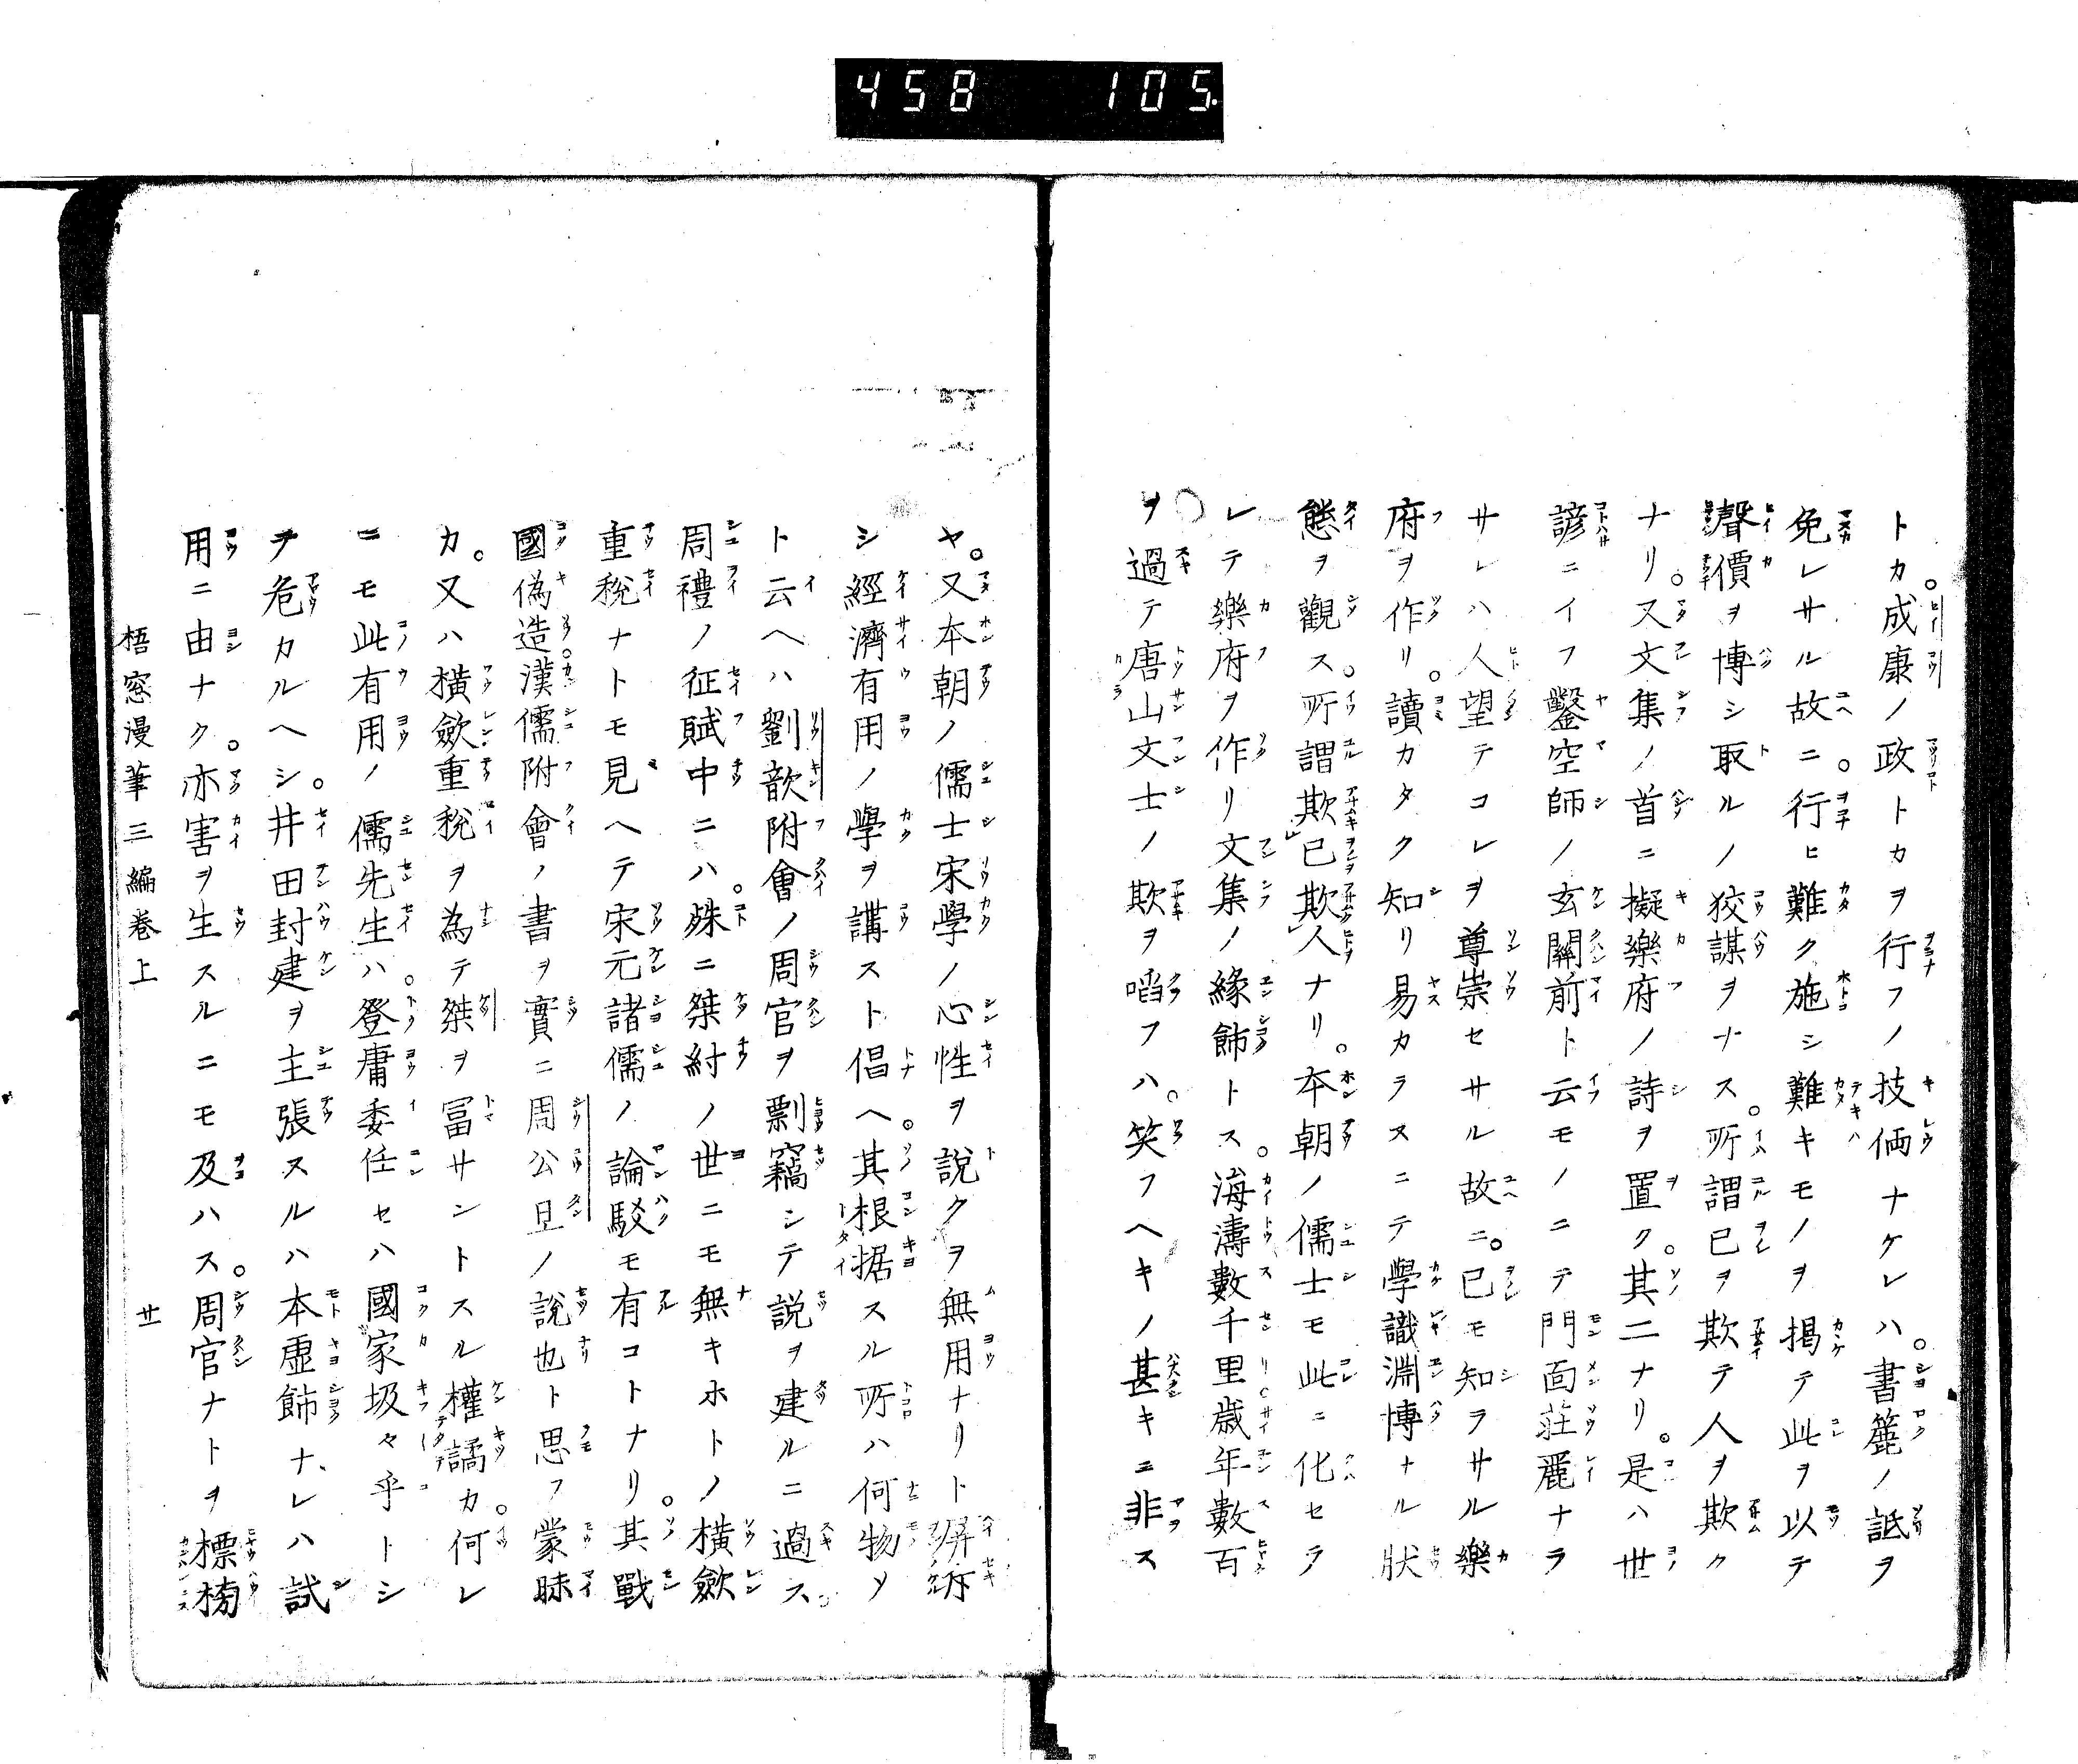 458 105
トカ。成康ノ政トカヲ行フノ技倆ナケレハ。書簏ノ詆ヲ
免レサル故ニ。行ヒ難ク施シ難キモノヲ掲テ此ヲ以テ
聲價ヲ博シ取ルノ狡謀ヲナス。所謂已ヲ欺テ人ヲ欺ク
ナリ。又文集ノ首ニ擬樂府ノ詩ヲ置ク。其二ナリ。是ハ世
諺ニイフ鑿空師ノ玄關前ト云モノニテ門面莊麗ナラ
サレハ人望テコレヲ尊崇セサル故ニ。已モ知ラサル樂
府ヲ作リ。讀カタク知リ易カラスニテ學識淵博ナル狀
態ヲ觀ス。所謂欺已欺人ナリ。本朝ノ儒士モ此ニ化セラ
レテ樂府ヲ作リ文集ノ緣飾トス。海濤數千里歳年數百
ヲ過テ唐山文士ノ欺ヲ啗フハ。笑フヘキノ甚キニ非ス
ヤ。又本朝ノ儒士宋學ノ心性ヲ說クヲ無用ナリト屏斥
シ經濟有用ノ學ヲ講スト倡ヘ。其根据スル所ハ何物ソ
ト云ヘハ劉歆附會ノ周官ヲ剽竊シテ説ヲ建ルニ過ス。
周禮ノ征賦中ニハ。殊ニ桀紂ノ世ニモ無キホトノ橫斂
重稅ナトモ見ヘテ宋元諸儒ノ論駁モ有コトナリ。其戰
國偽造。漢儒附會ノ書ヲ實ニ周公旦ノ說也ト思フ蒙昧
カ。又ハ橫斂重稅ヲ為テ桀ヲ冨サントスル權譎カ。何レ
ニモ此有用ノ儒先生ハ。登庸委任セハ國家圾々乎トシ
テ危カルヘシ。井田封建ヲ主張スルハ本虛飾ナレハ試
用ニ由ナク。亦害ヲ生スルニモ及ハス。周官ナトヲ標榜
梧窓漫筆三編卷上 廿